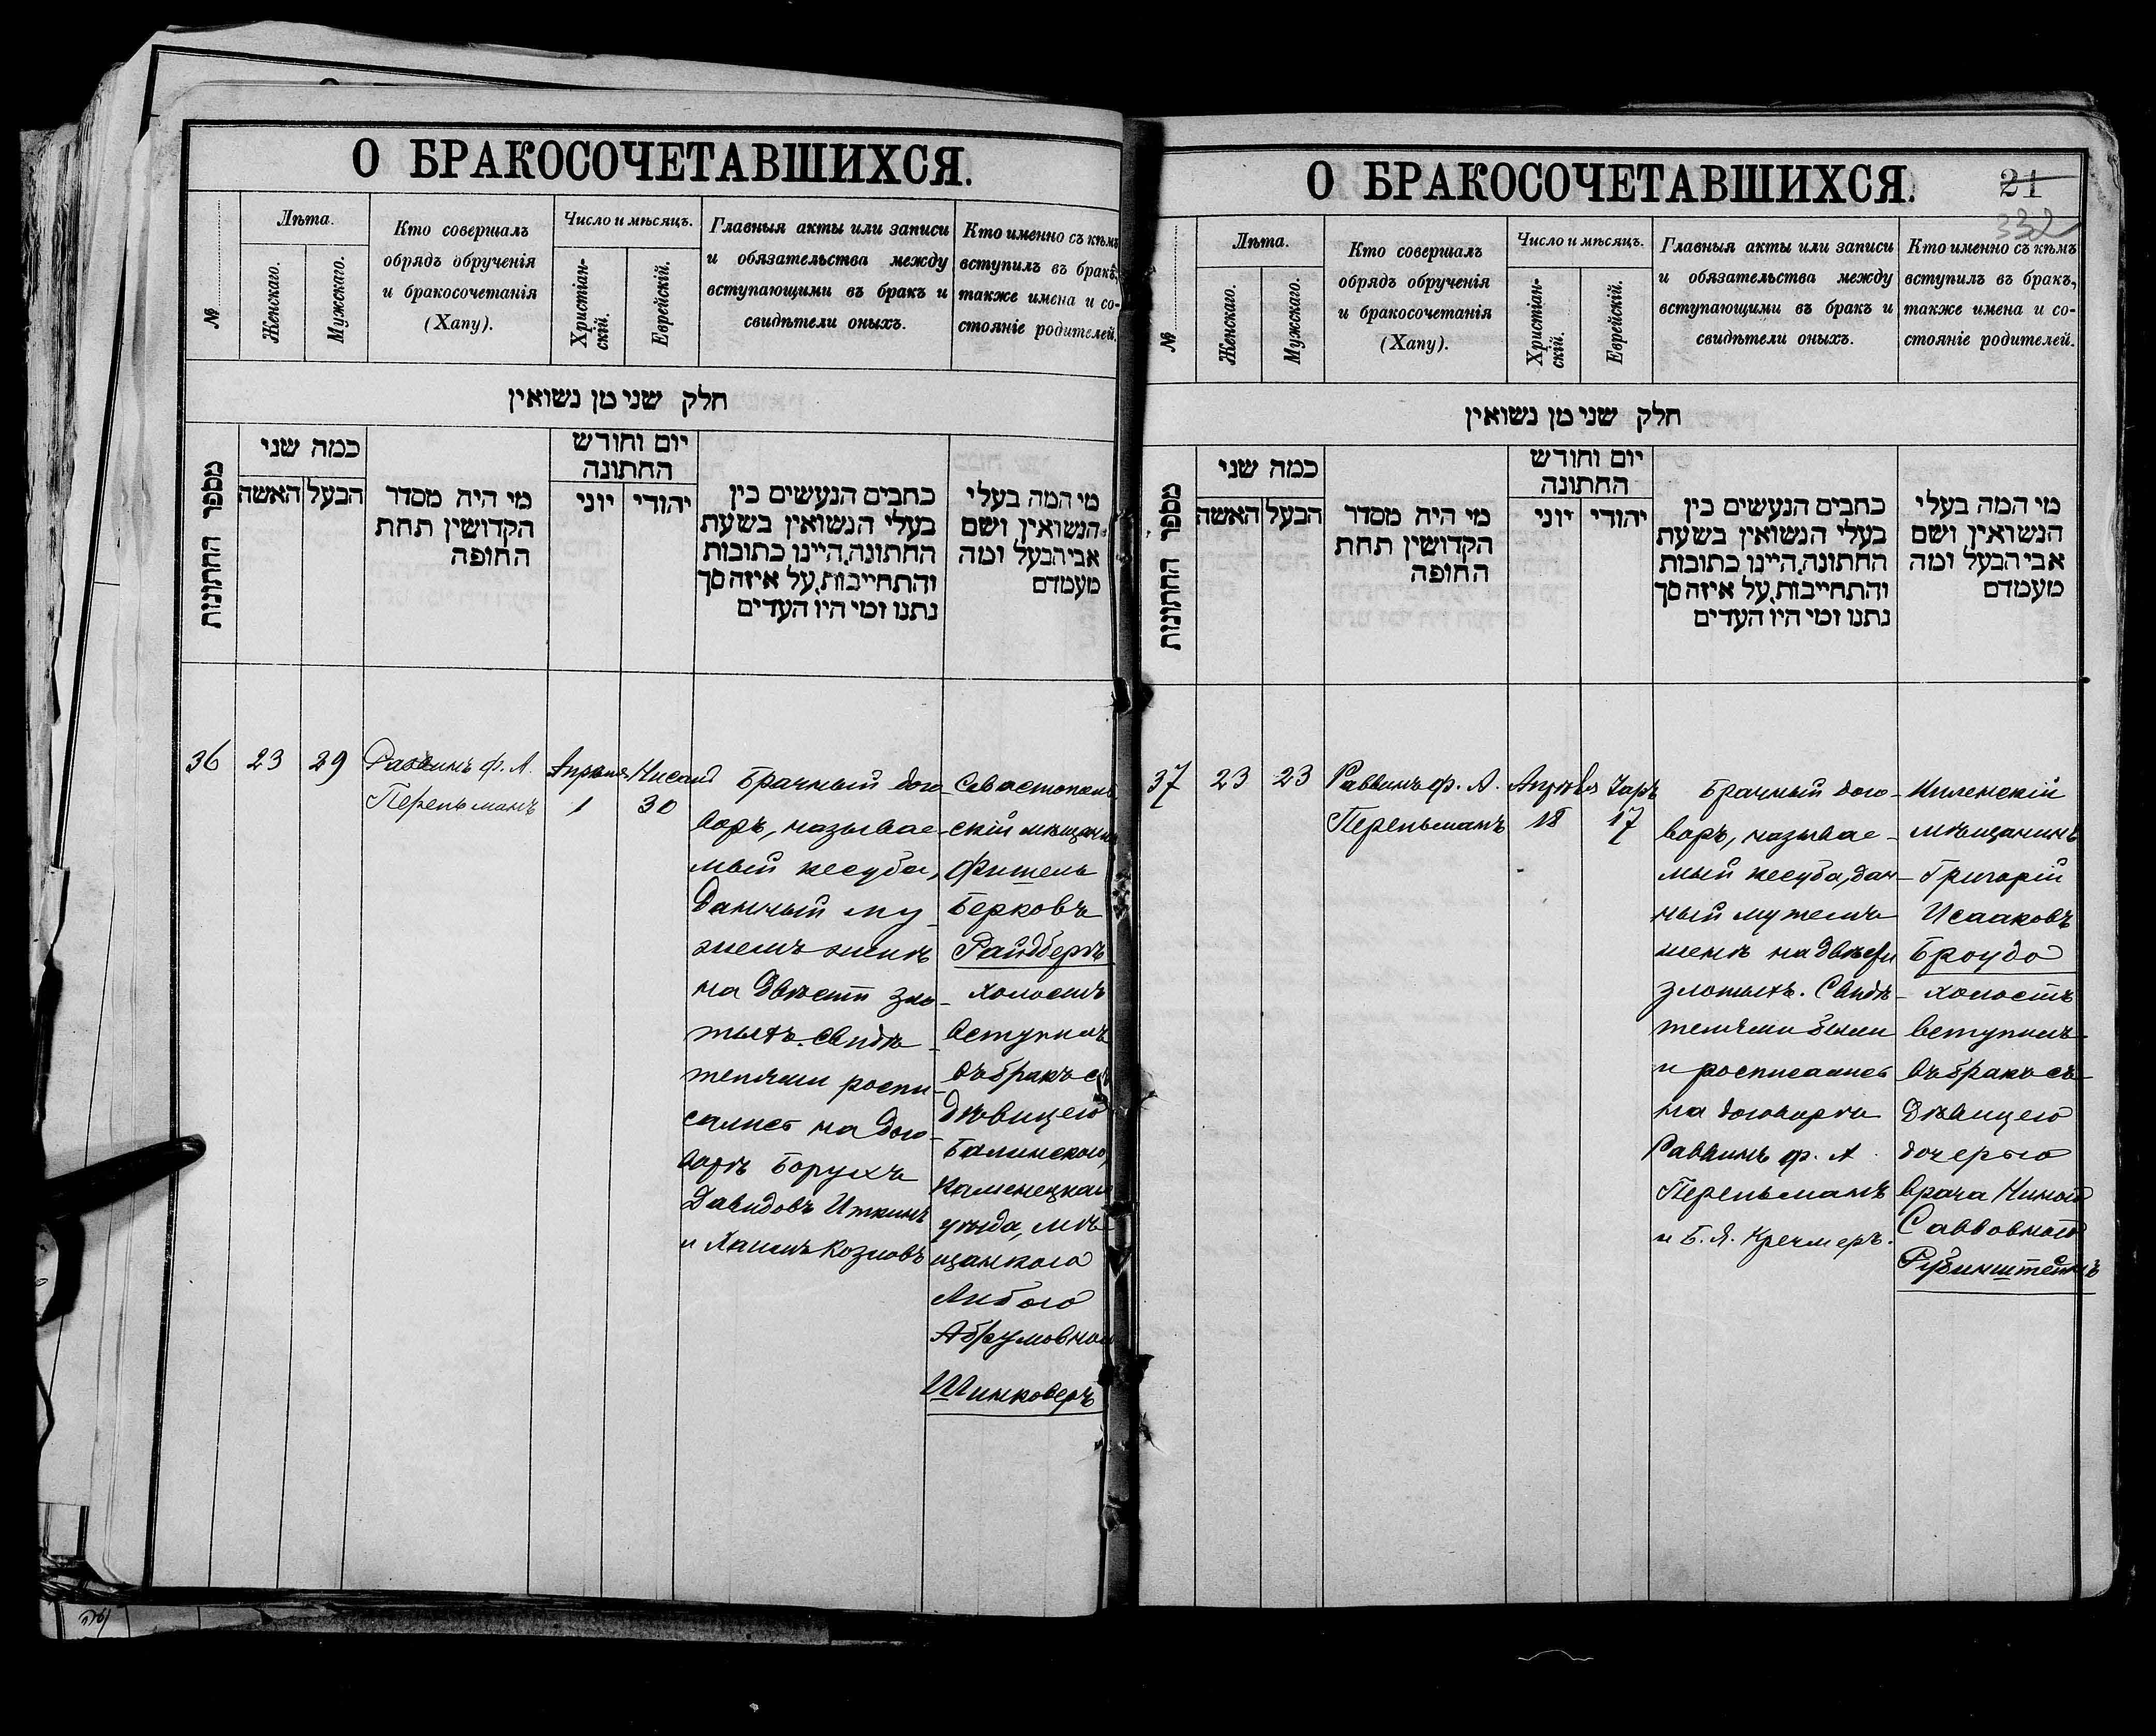 О БРАКОСОЧЕТАВШИХСЯ.
№
Лѣта.
Женскаго.
Мужскаго.
Кто совершалъ
обрядъ обрученія
и бракосочетанія
(Хапу).
Число и мѣсяцъ.
Христіан-
скій.
Еврейскій.
Главныя акты или записи
и обязательства между
вступающими въ бракъ и
свидѣтели оныхъ.
Кто именно съ кѣмъ
вступилъ въ бракъ,
также имена и со-
стояніе родителей.
חלק שני מן נשואין
מספר החתונות
כמה שני
האשה
הבעל
מי היה מסדר
הקדושין תחת
החופה
יום וחודש
החתונה
יוני
יהודי
כתבים הנעשים בין
בעלי הנשואין בשעת
החתונה, היינו כתובות
והתחייבות, על איזה סך
נתנו ומי היו העדים
מי המה בעלי
הנשואין ושם
אבי הבעל ומה
מעמדם
36
23
29
Раввинъ Ф. А.
Перельманъ
Апрѣля
1
Нисанъ
30
Брачный дого
воръ, называе-
мый кесуба,
данный му-
жемъ женѣ
на двѣсти зло-
тыхъ. Свидѣ-
телями роспи-
сались на дого-
ворѣ Борухъ
Давидовъ Иткинъ
и Хаимъ Козловъ
Севастополь
скій мѣщанинъ
Фишель
Берковъ
Райдберъ
холостъ
вступилъ
въ бракъ съ
дѣвицею
Балинскою,
Каменецкаго
уѣзда, мѣ-
щанкою
Либою
Абрумовною
Шинковеръ
О БРАКОСОЧЕТАВШИХСЯ.
21
332
№
Лѣта.
Женскаго.
Мужскаго.
Кто совершалъ
обрядъ обрученія
и бракосочетанія
(Хапу).
Число и мѣсяцъ.
Христіан-
скій.
Еврейскій.
Главныя акты или записи
и обязательства между
вступающими въ бракъ и
свидѣтели оныхъ.
Кто именно съ кѣмъ
вступилъ въ бракъ,
также имена и со-
стояніе родителей.
חלק שני מן נשואין
מספר החתונות
כמה שני
האשה
הבעל
מי היה מסדר
הקדושין תחת
החופה
יום וחודש
החתונה
יוני
יהודי
כתבים הנעשים בין
בעלי הנשואין בשעת
החתונה, היינו כתובות
והתחייבות, על איזה סך
נתנו ומי היו העדים
מי המה בעלי
הנשואין ושם
אבי הבעל ומה
מעמדם
37
23
23
Раввинъ Ф. А.
Перельманъ
Апрѣля
18
Іаръ
17
Брачный дого-
воръ, называе-
мый кесуба, дан-
ный мужемъ
женѣ на двѣсти
злотыхъ. Свидѣ-
телями были
и росписались
на договорѣ
Раввинъ Ф. А.
Перельманъ
и Б. Я. Кречмеръ.
мѣщанинъ
Григорій
Исааковъ
Броудо
холостъ
вступилъ
въ бракъ съ
дѣвицею
дочерью
врача Ниною
Саввовною
Рубинштейнъ